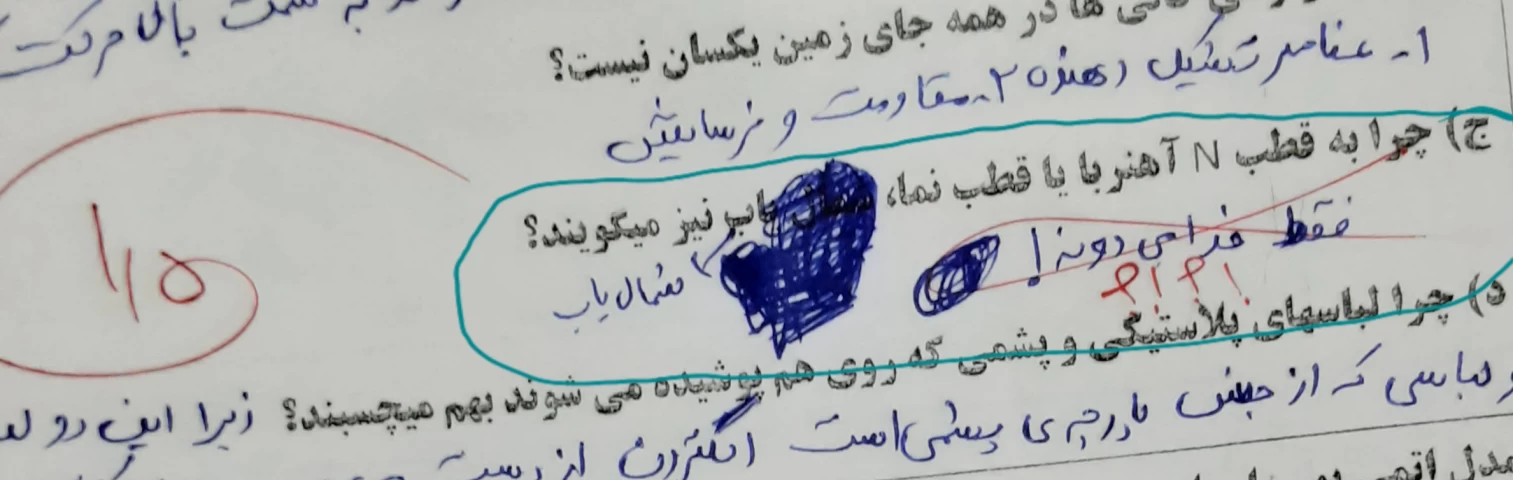 به سمت بالا حرکت
ها در همه جای زمین یکسان نیست؟
۱- عناصر تشکیل دهنده ۲- مقاومت و فرسایش
ج) چرا به قطب N آهنربا یا قطب نما، یاب نیز میگویند؟
فقط خدا می دونه!
شمال یاب
؟!؟!
۱/۵
د) چرا لباسهای پلاستیکی و پشمی که روی هم پوشیده می شوند بهم میچسبند؟ زیرا این دو
لباسی که از جنس پارچه ی پشمی است الکترون از دست
مدل اتمی